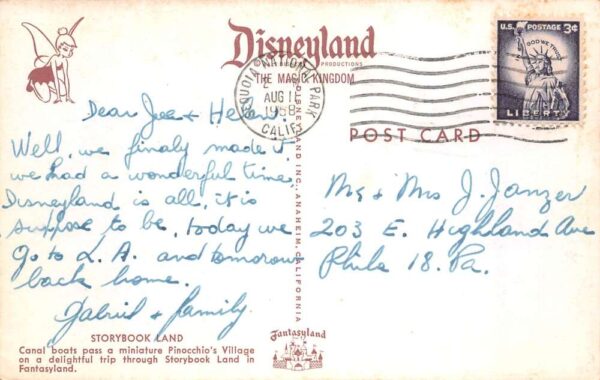 Disneyland
THE MAGIC KINGDOM
PRODUCTIONS
SEQUOIA NATIONAL PARK
AUG 1
1958
CALIF.
U.S. POSTAGE 3¢
IN GOD WE TRUST
LIBERTY
POST CARD
Dear Joe + Helen.
Well, we finaly made it
we had a wonderful time
Disneyland is all, it is
suppose to be, today we
go to L. A. and tomorow
back home.
Gabriel + family.
DISNEYLAND INC., ANAHEIM, CALIFORNIA
Mr + Mrs J. Janzer
203 E. Highland Ave
Phila 18. Pa.
STORYBOOK LAND
Canal boats pass a miniature Pinocchio's Village
on a delightful trip through Storybook Land in
Fantasyland.
Fantasyland